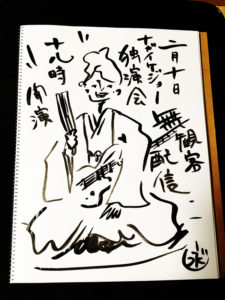 二月十日
ナガイケジョー
独演会
十八時
開演
無観客
配信